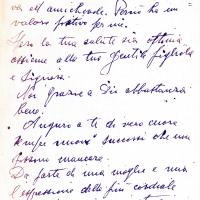 va ed amichevole. Perciò ha un
valore per me.
Spero la tua salute sia ottima
assieme alla tua gentile figliola
e Signora.
Noi grazie a Dio abbastanza
bene.
Auguro a te di vero cuore
sempre nuovi successi che non
possono mancare.
Da parte di mia moglie e mia
l'espressione della più cordiale